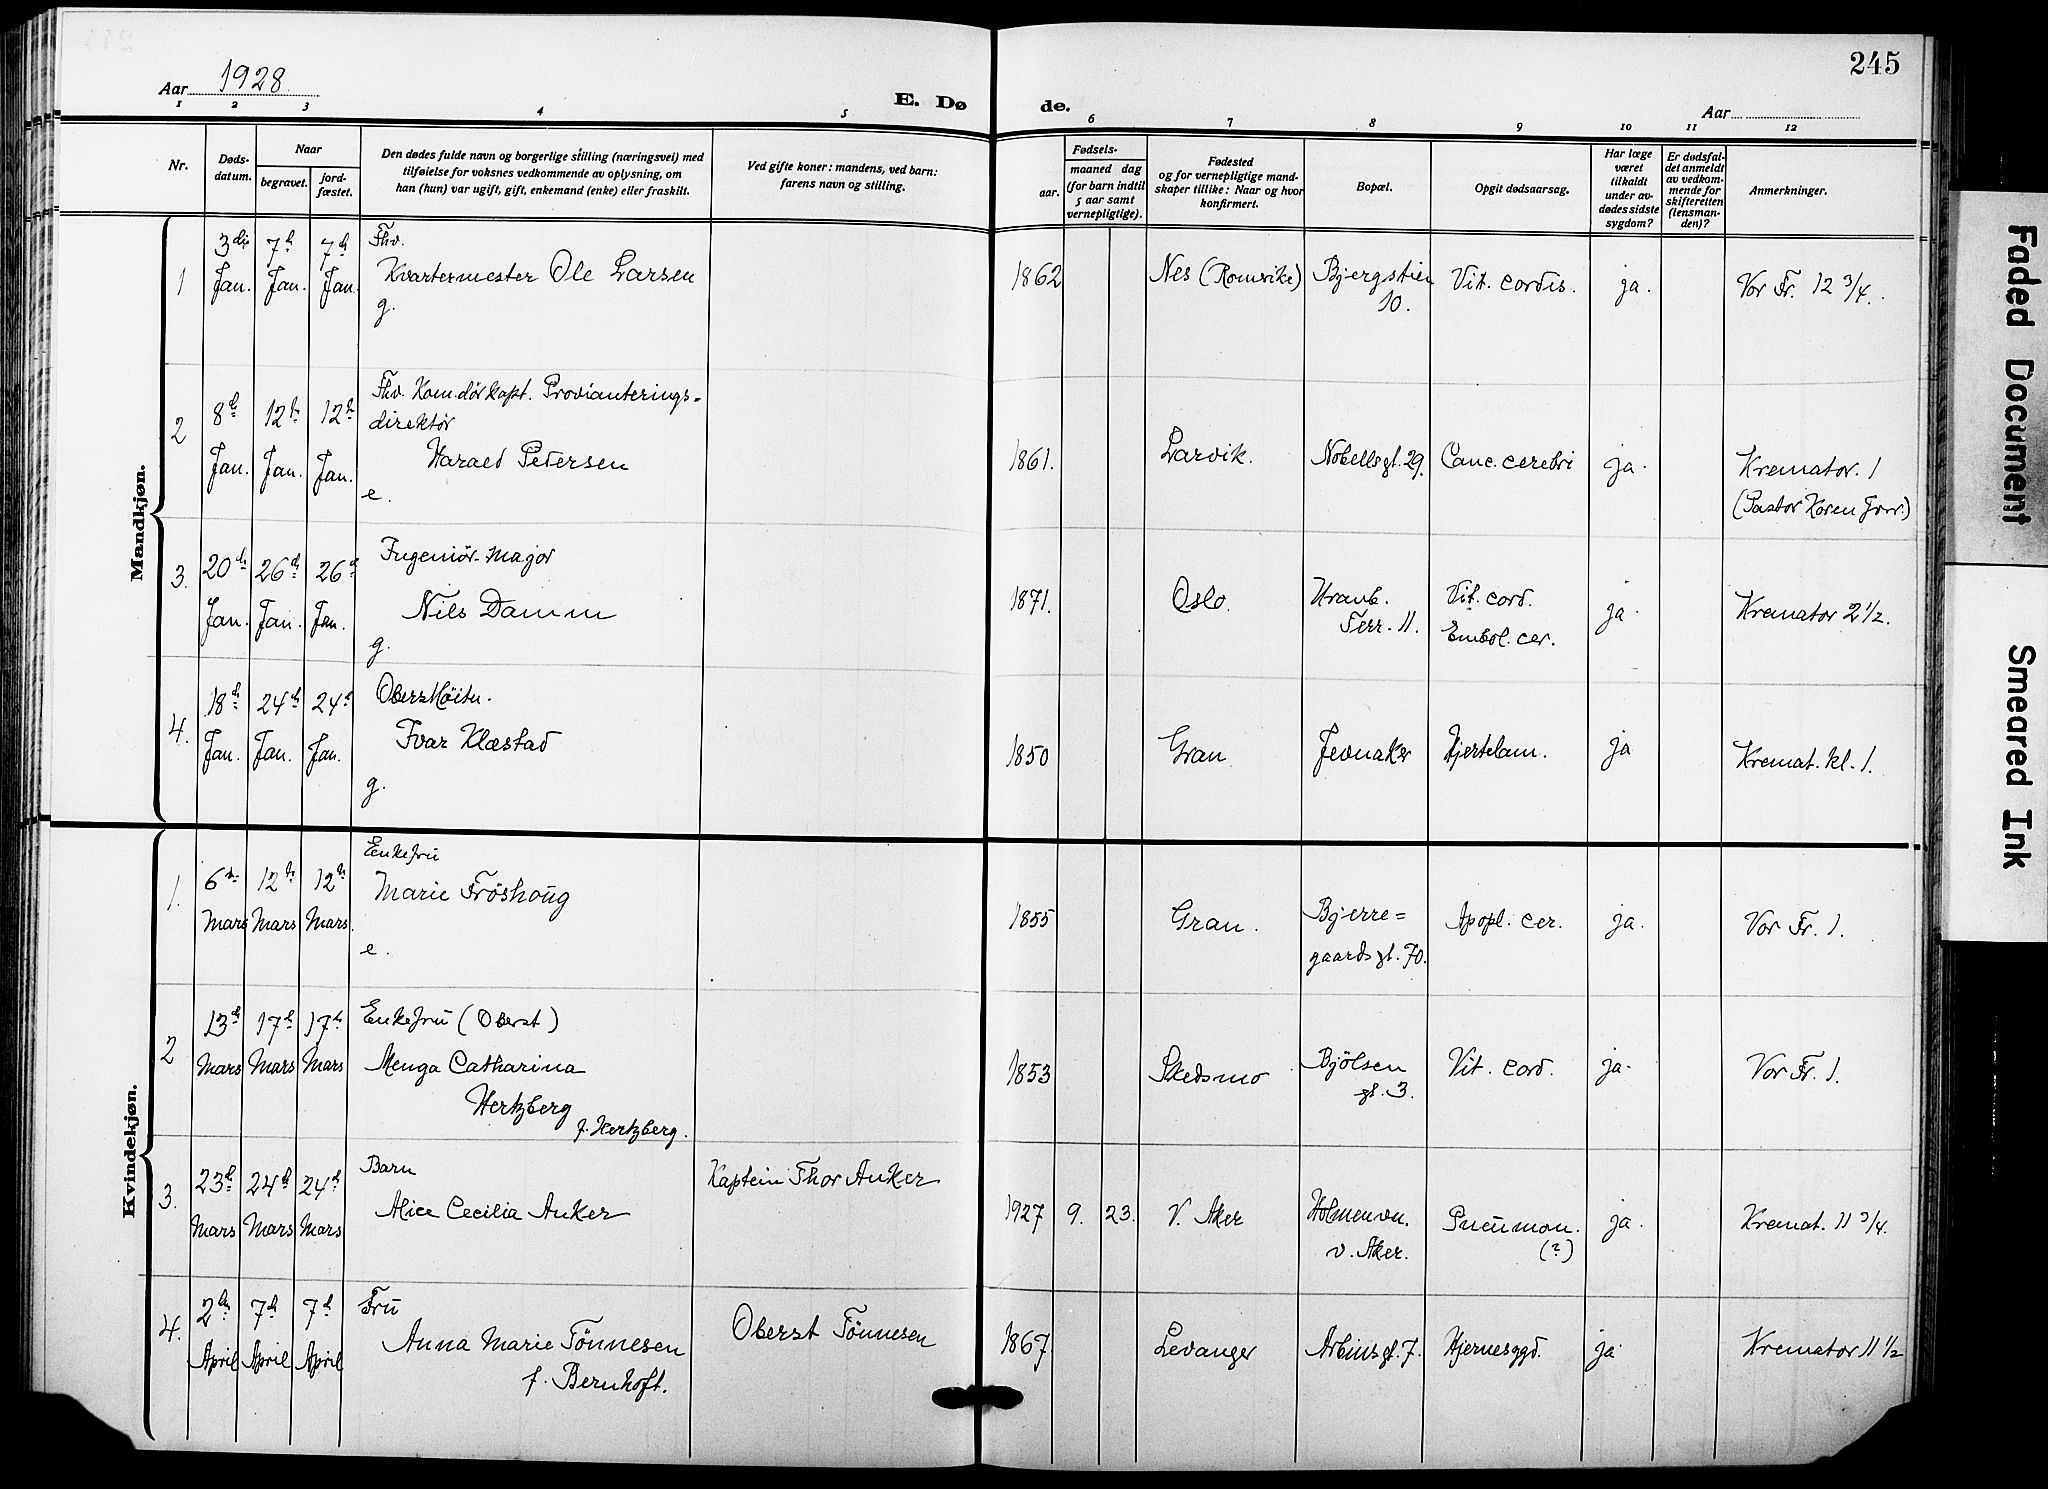 245
Aar 1928.
E. Dø de.
Aar
1 2 3 4 5 6 7 8 9 10 11 12
Nr.
Døds-
datum.
Naar
begravet.
jord-
fæstet.
Den dødes fulde navn og borgerlige stilling (næringsvei) med
tilføielse for voksnes vedkommende av oplysning, om
han (hun) var ugift, gift, enkemand (enke) eller fraskilt.
Ved gifte koner: mandens, ved barn:
farens navn og stilling.
Fødsels-
aar.
maaned dag
(for barn indtil
5 aar samt
vernepligtige).
Fødested
og for vernepligtige mand-
skaper tillike: Naar og hvor
konfirmert.
Bopæl.
Opgit dødsaarsag.
Har læge
været
tilkaldt
under av-
dødes sidste
sygdom?
Er dødsfal-
det anmeldt
av vedkom-
mende for
skifteretten
(lensman-
den)?
Anmerkninger.
Mandkjøn.
1
3die
Jan.
7de
Jan.
7de
Jan.
Fhv.
Kvartermester Ole Larsen
g.
1862
Nes (Romrike)
Bjergstien
10.
Vit. cordis.
ja.
Vor Fr. 12 3/4.
2
8de
Jan.
12te
Jan.
12te
Jan.
Fhv. Kom.dørkapt. Provianterings=
direktør
Harald Pedersen
e.
1861.
Larvik.
Nobelsgt. 29.
Canc. cerebri
ja.
Kremator. 1
(Pastor Koren Forr.)
3.
20de
Jan.
26de
Jan.
26de
Jan.
Ingeniør-Major
Nils Damm
g.
1871.
Oslo.
Uranb.
Terr. 11.
Vit. cord.
Embol. cer.
ja.
Kremator 2 1/2.
4.
18de
Jan.
24de
Jan.
24de
Jan.
Oberstløitn.
Ivar Klæstad
g.
1850
Gran
Jevnaker
Hjertelam.
ja
Kremat. kl. 1.
Kvindekjøn.
1.
6te
Mars
12te
Mars
12te
Mars.
Enkefru
Marie Frøshoug
e.
1855
Gran.
Bjerre=
gaardsgt. 70.
Apopl. cer.
ja.
Vor Fr. 1.
2
13de
Mars
17de
Mars
17de
Mars
Enkefru (Oberst)
Menga Catharina
Hertzberg
f. Hertzberg.
1853
Skedsmo
Bjölsen
gt. 3.
Vit. cord.
ja.
Vor Fr. 1.
3.
23de
Mars
24de
Mars
24de
Mars
Barn
Alice Cecilia Anker
Kaptein Thor Anker
1927 9. 23.
V. Aker
Holmenvn.
V. Aker.
Pneumon.
(?)
ja.
Kremat. 11 3/4.
4.
2den
April
7de
April
7de
April
Fru
Anna Marie Tönnesen
f. Bernhoft.
Oberst Tönnesen
1867.
Levanger
Arbinsgt. 7.
Hjernesygd.
ja
Kremator 11 1/2
Faded Document
Smeared Ink